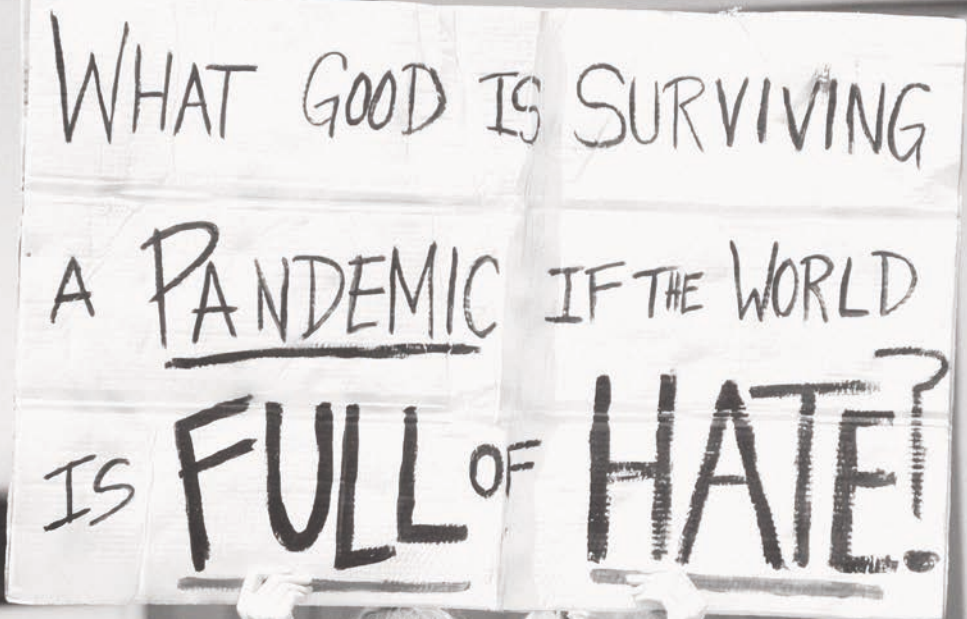 WHAT GOOD IS SURVIVING
A PANDEMIC IF THE WORLD
IS FULL OF HATE?